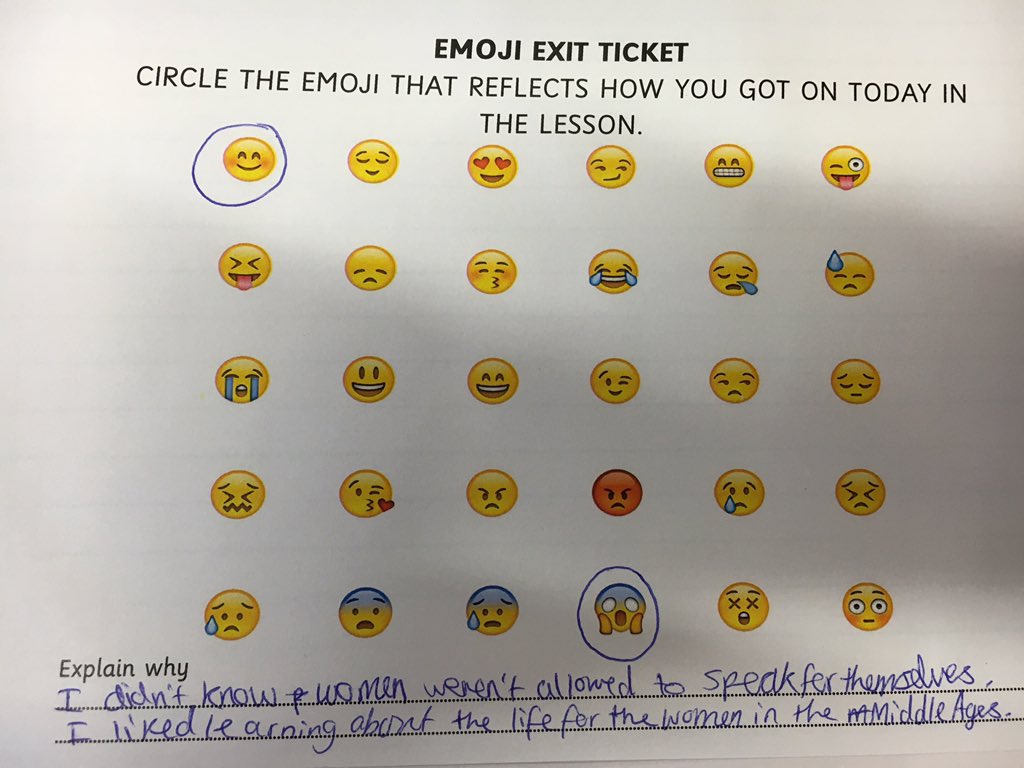 EMOJI EXIT TICKET
CIRCLE THE EMOJI THAT REFLECTS HOW YOU GOT ON TODAY IN
THE LESSON.
Explain why
I didn't know women weren't allowed to speak for themselves.
I liked learning about the life for the women in the Middle Ages.